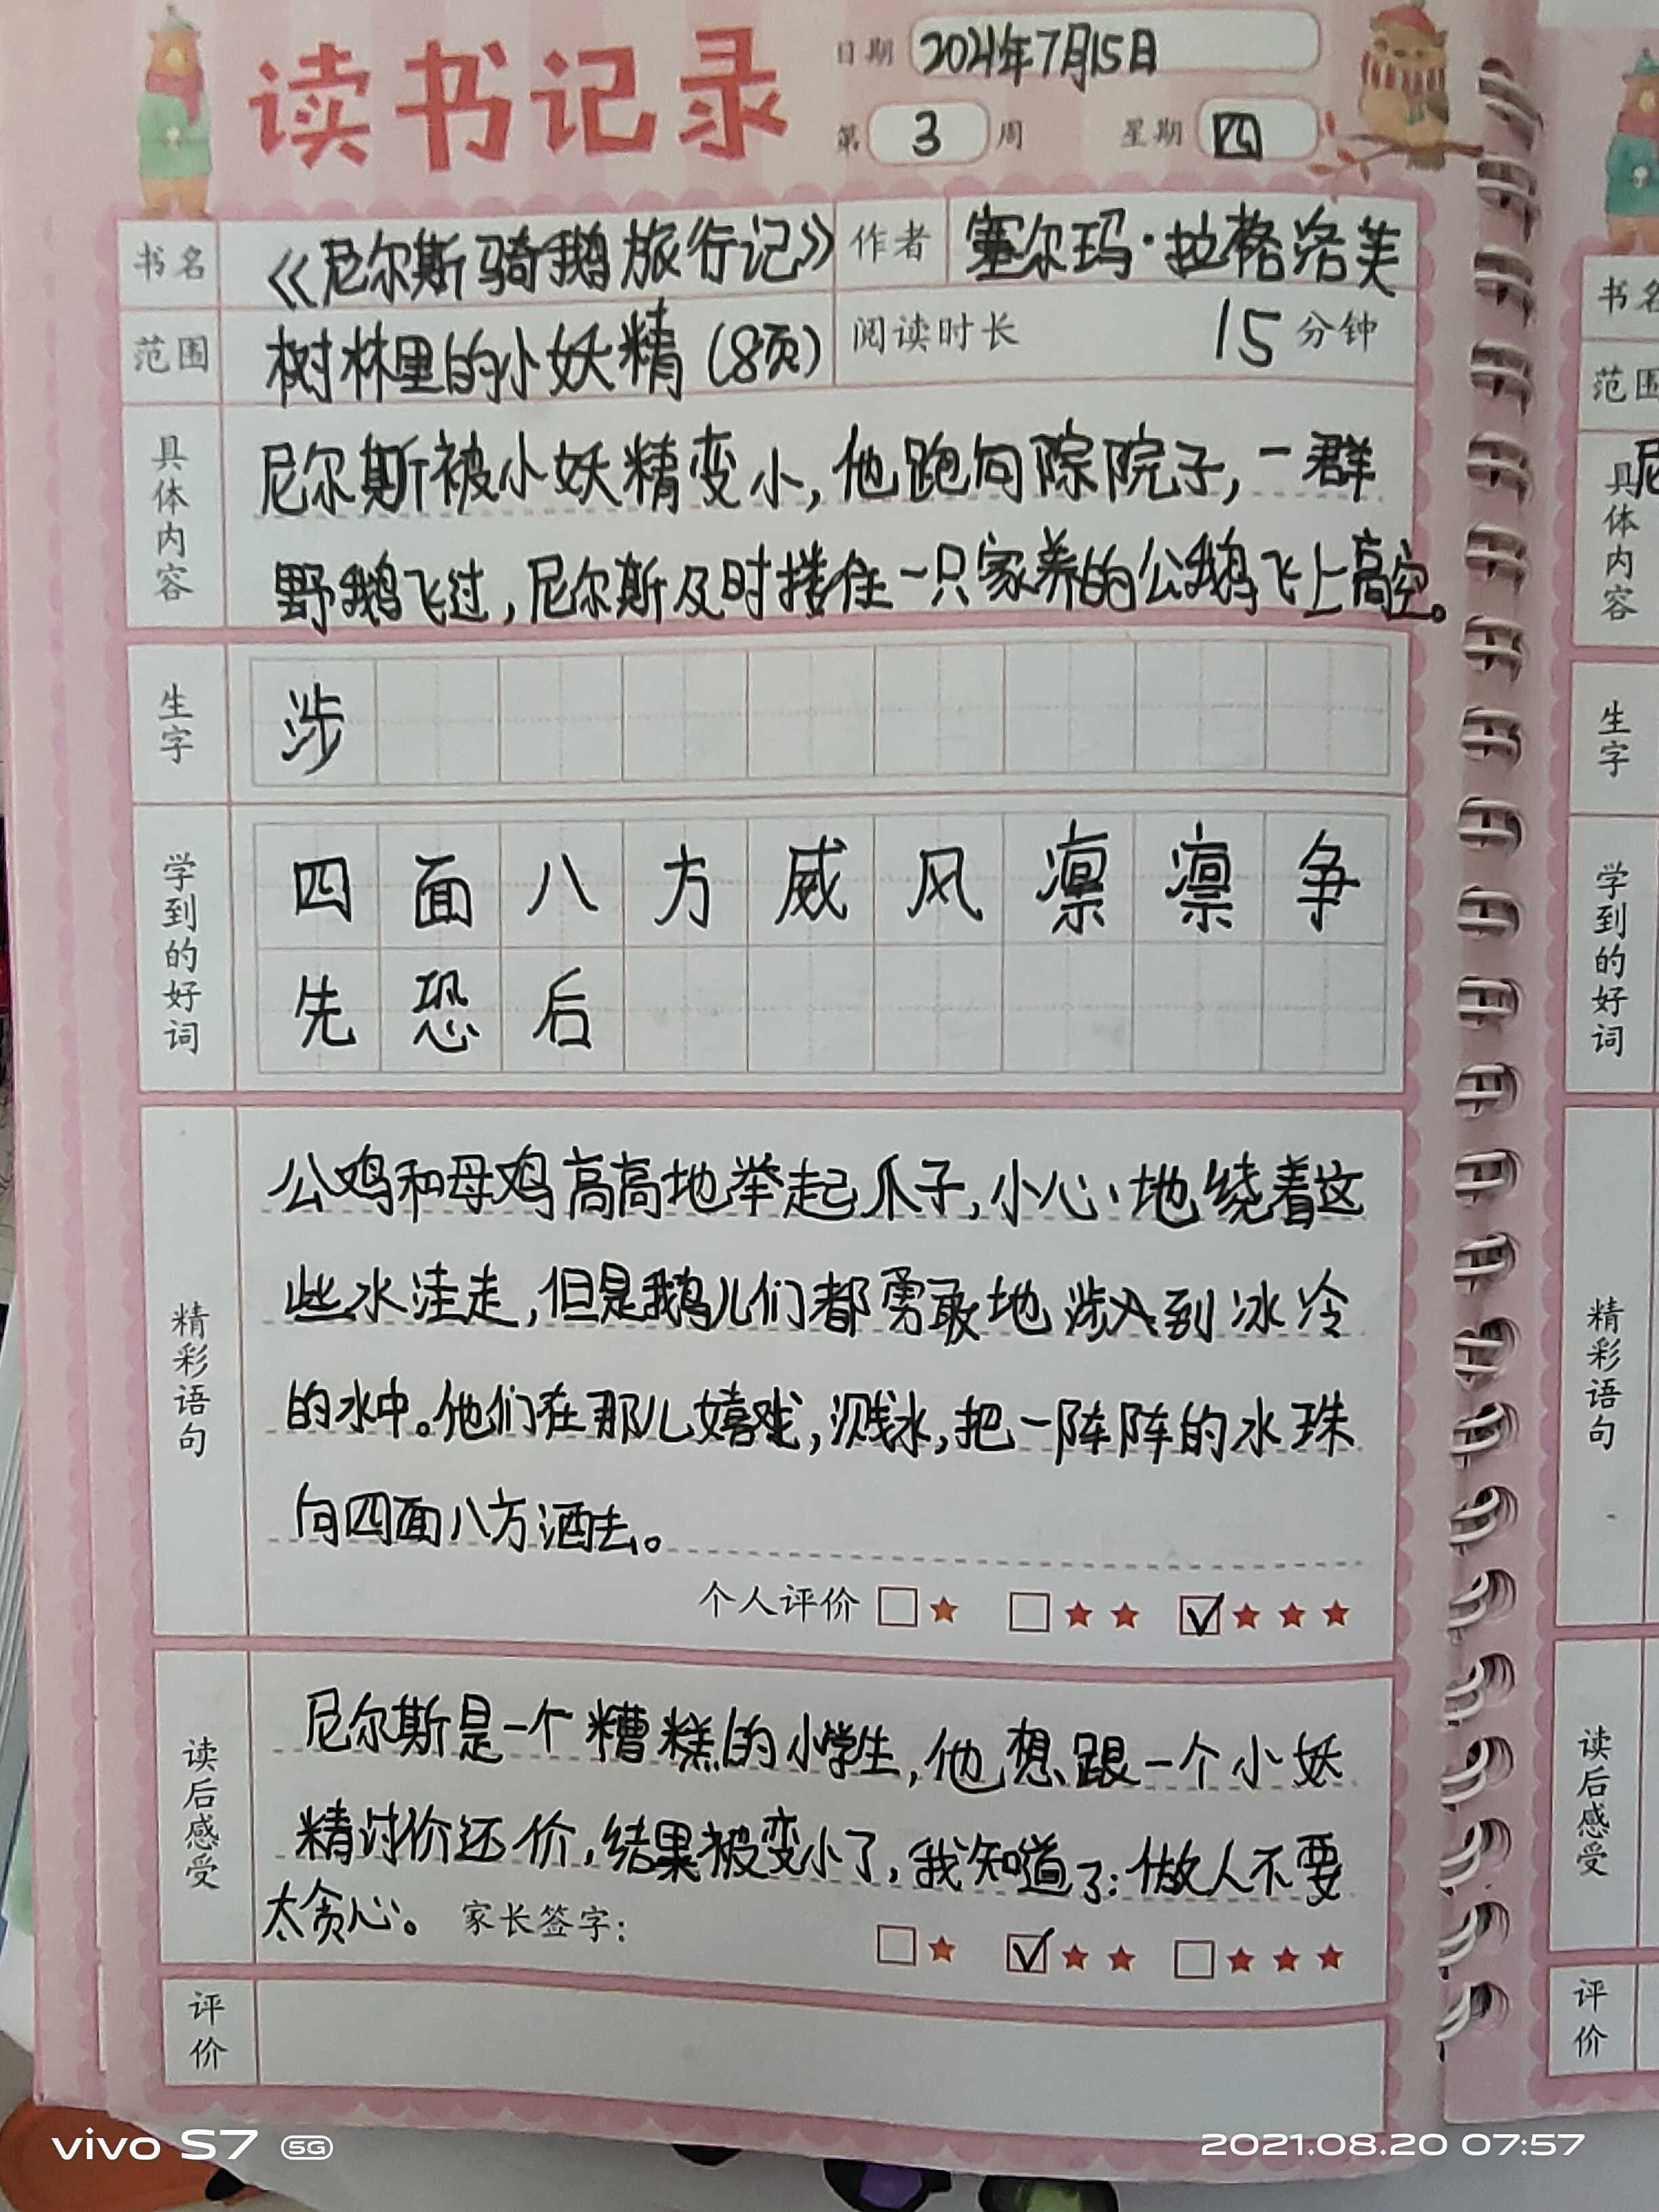 读书记录
日期 2021年7月15日
第 3 周 星期 四
书名 《尼尔斯骑鹅旅行记》 作者 塞尔玛·拉格洛芙
范围 树林里的小妖精(8页) 阅读时长 15分钟
具体内容
尼尔斯被小妖精变小,他跑向院子,一群
野鹅飞过,尼尔斯及时搂住一只家养的公鹅飞上高空。
生字
涉
学到的好词
四面八方威风凛凛争
先恐后
精彩语句
公鸡和母鸡高高地举起爪子,小心地绕着这
些水洼走,但是鹅儿们都勇敢地涉入到冰冷
的水中。他们在那儿嬉戏,溅水,把一阵阵的水珠
向四面八方洒去。
个人评价
读后感受
尼尔斯是一个糟糕的小学生,他想跟一个小妖
精讨价还价,结果被变小了,我知道了:做人不要
太贪心。 家长签字:
评价
书名
范围
具体内容
生字
学到的好词
精彩语句
读后感受
评价
vivo S7 5G
2021.08.20 07:57